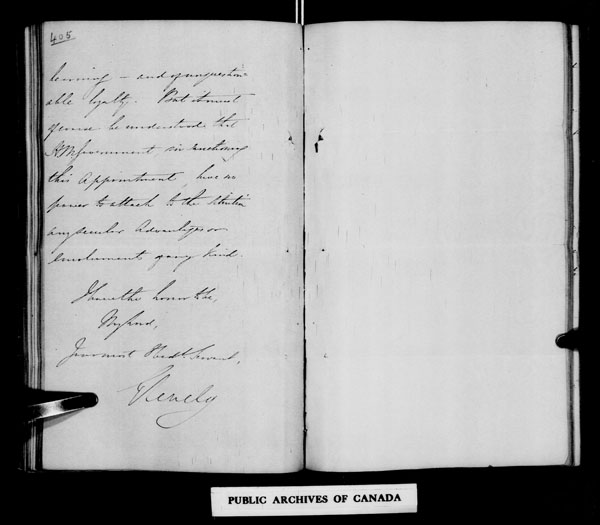 405
learning – and of unquestion-
able loyalty. But it must
of course be understood that
H M Government in sanctioning
this Appointment, have no
power to attach to the situation
any secular Advantages or
emoluments of any kind.
I have the honor to be,
My Lord,
Your most Obedt Servant,
PUBLIC ARCHIVES OF CANADA